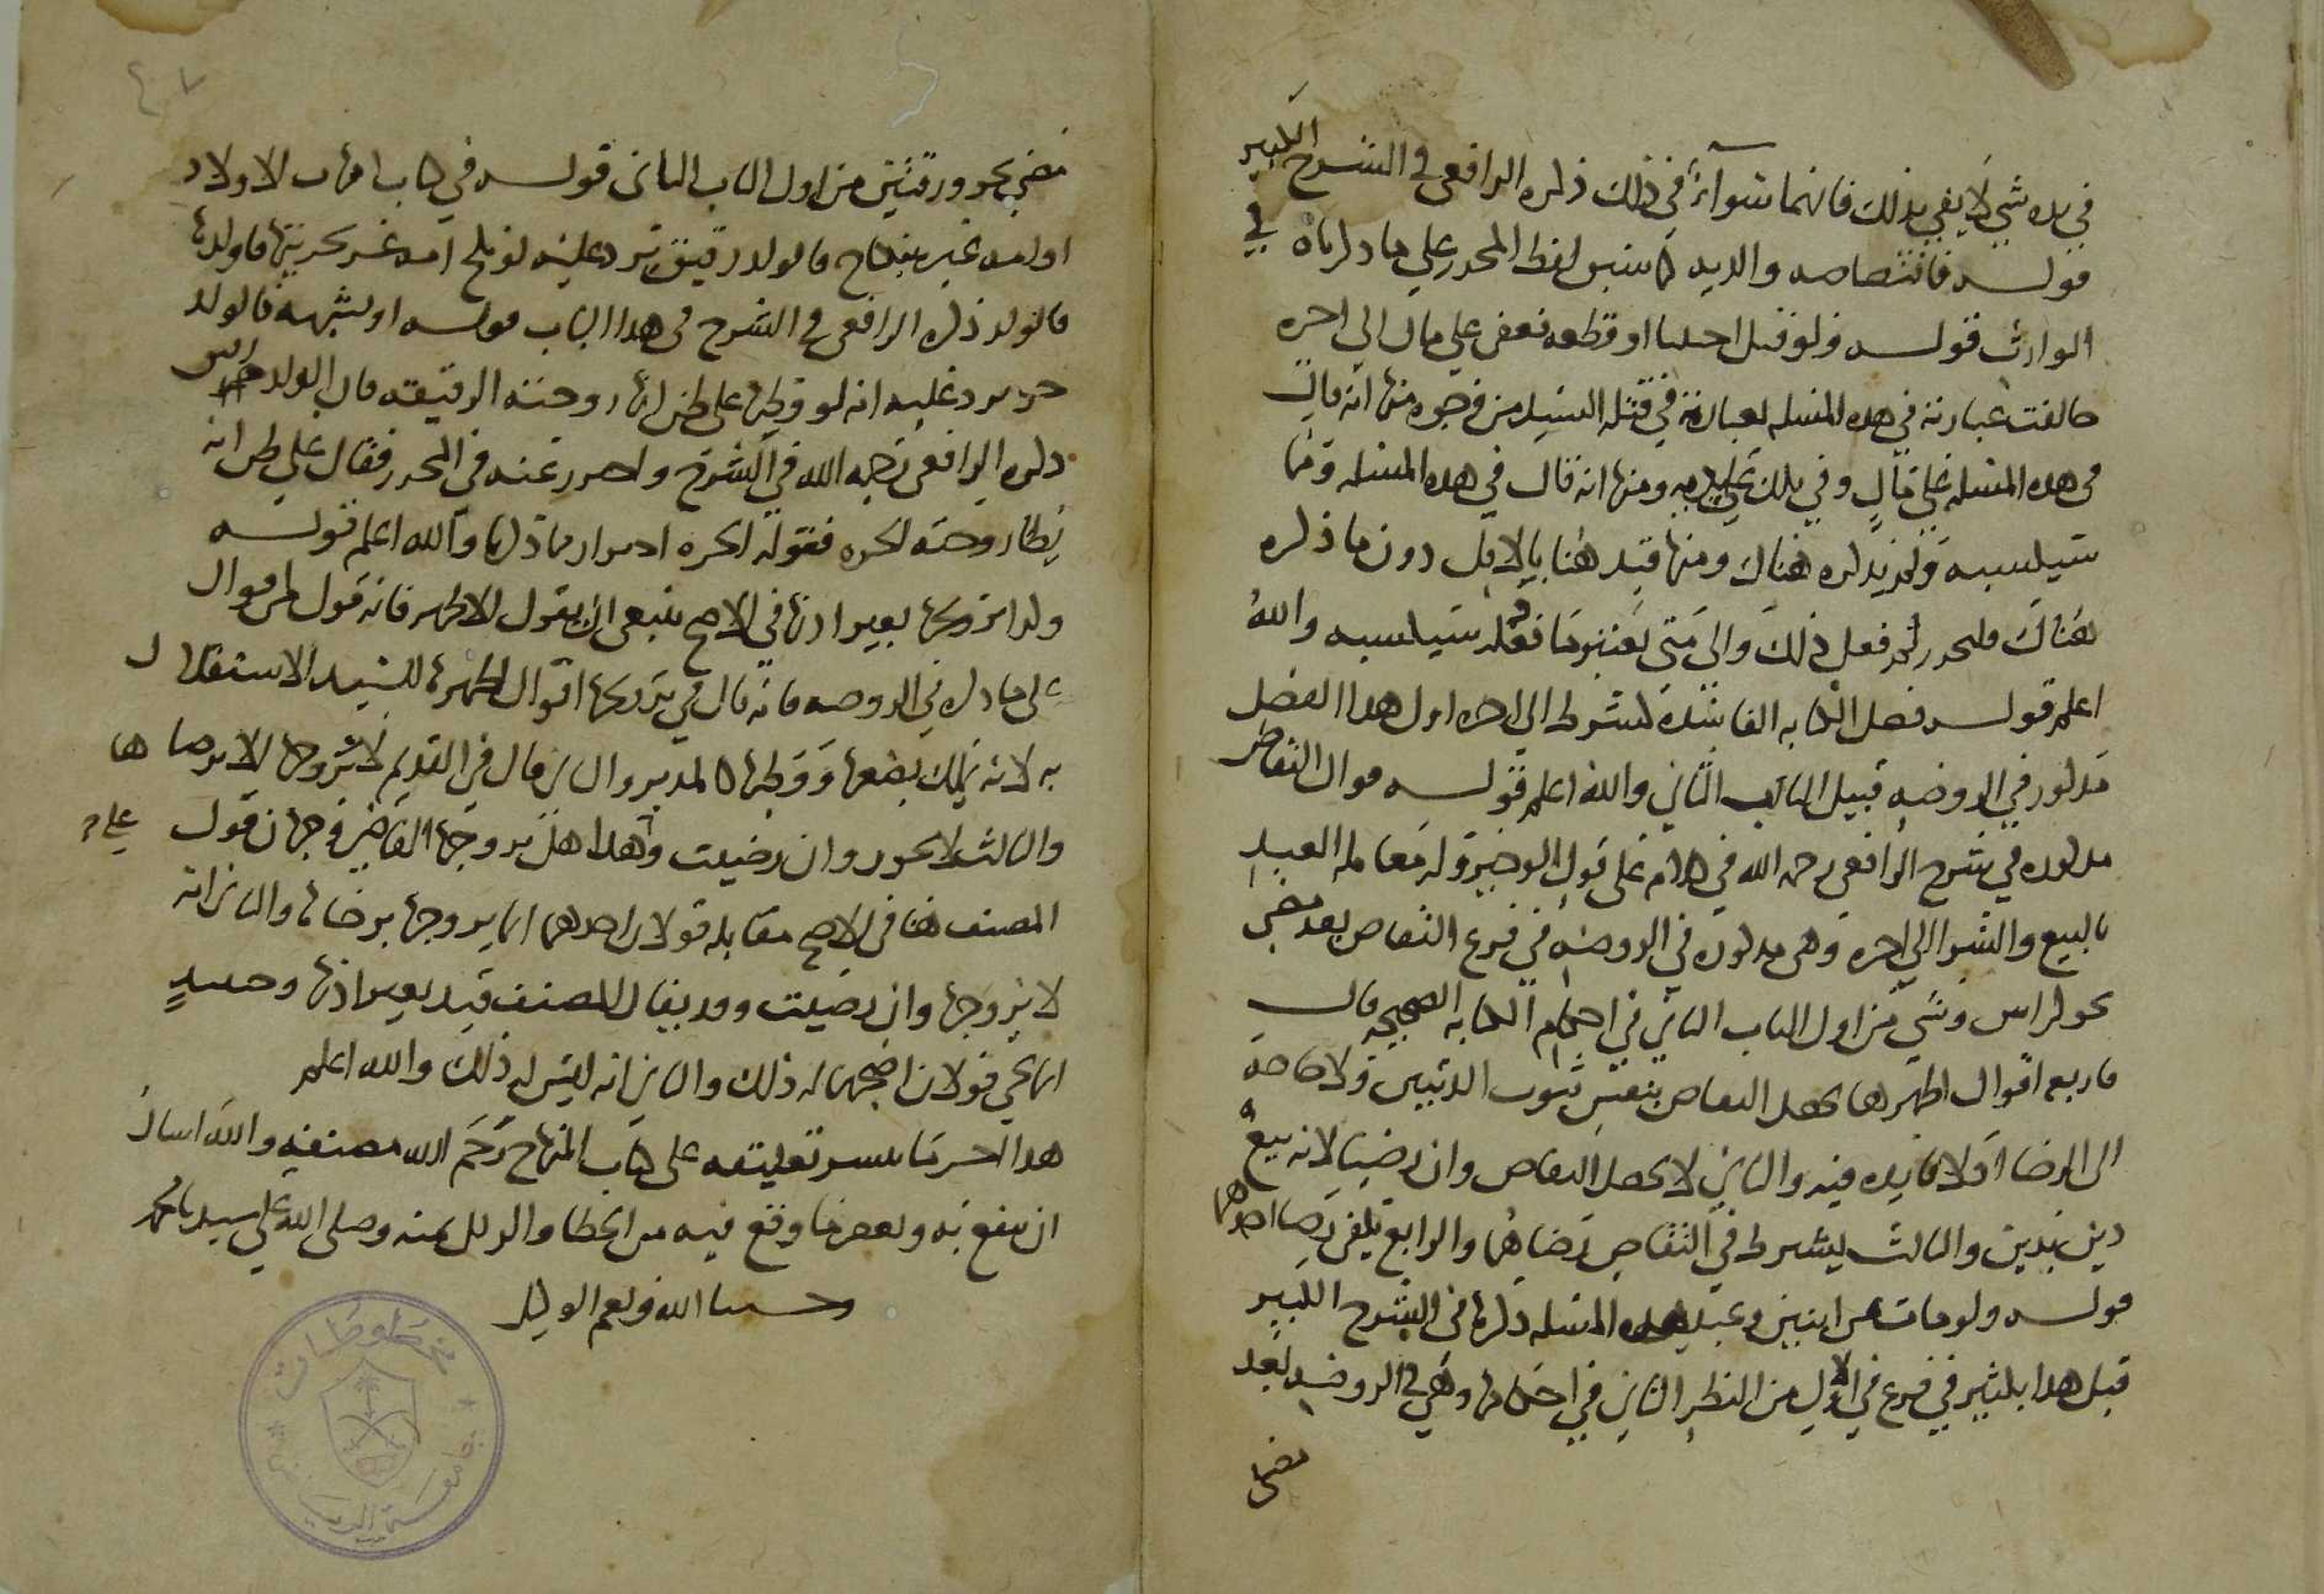 في يده شي لا يفي بذلك فانهما سوآء في ذلك ذكره الرافعي في الشرح الكبير
قوله فاقتصاصه والديه كما سبق لفظ المحرر على ما ذكرناه في
الوارث قوله ولو قتل اجنبيا او قطعه فعفي على مال الى اخره
خالفت عبارته في هذه المسله لعبارته في قتله السيد من وجوه منها انه قال
في هذه المسله على مال وفي تلك على ديه ومنها انه قال في هذه المسله وما
سيكسبه ولم يذكره هناك ومنها قيد هنا بالاقل دون ما ذكره
هناك فليحرر لم فعل ذلك والى متى يعتبر ما سيكسبه والله
اعلم قوله فصل الكتابه الفاسدة لشرط الى اخره اول هذا الفصل
مذكور في الروضه قبيل الباب الثاني والله اعلم قوله اقوال التقاص
مذكوره في شرح الرافعي رحمه الله في الكلام على قول الوجيز وله معامله العبد
بالبيع والشرا الى اخره وهي مذكوره في الروضه في فرع التقاص بعد مضي
نحو كراس وشي من اول الباب الثاني في احكام الكتابه الصحيحه قال
فاربع اقوال اظهرها يحصل التقاص بنفس ثبوت الدينين ولا حاجة
الى الرضا اذ لا فايده فيه والثاني لا يحصل التقاص وان رضيا لانه بيع
دين بدين والثالث يشترط في التقاص رضاهما والرابع يكفي رضا احدهما
قوله ولو مات عن ابنين وعبد هذه المسله ذكرها في الشرح الكبير
قبل هذا بكثير في فرع في الاول من النظر الثاني في احكامها وهي في الروضه بعد
مضي
٤٧
مضي نحو ورقتين من اول الباب الثاني قوله في كتاب امهات الاولاد
او امه غيره بنكاح فالولد رقيق يرد عليه لو نكح امه غر بحريتها فاولدها
فالولد ذكره الرافعي في الشرح في هذا الباب قوله او لشبهه فالولد
حر يرد عليه انه لو وطيها على ظن انها زوجته الرقيقه فان الولد
ذكره الرافعي رحمه الله في الشرح واحترز عنه في المحرر فقال على ظن انه
يطا زوجته الحره فقوله الحره احتراز مما ذكرنا والله اعلم قوله
وكذا تزويجها بغير اذنها في الاصح ينبغي ان يقول الاظهر فانه قول من اقوال
على ما ذكره في الروضه فانه قال في تزويجها اقوال اظهرها للسيد الاستقلال
به لانه يملك بضعها ووطيها كالمدبر والثاني قال في القديم لا يزوجها الا برضاها
والثالث لا يجوز وان رضيت وعلى هذا هل يزوجها القاضي وجهان قول
المصنف هنا في الاصح مقابله قولان احدهما انما يزوجها برضاها والثاني انه
لا يزوجها وان رضيت وقد يقال المصنف قيد بغير اذنها وحينيذ
انما يجي قولان اصحهما له ذلك والثاني انه ليس له ذلك والله اعلم
هذا اخر ما تيسر تعليقه على كتاب المنهاج رحم الله مصنفه والله اسال
ان ينفع به ويغفر ما وقع فيه من الخطا والزلل بمنه وصلى الله على سيدنا محمد
وحسبنا الله ونعم الوكيل
مخطوطات
جامعة الرياض